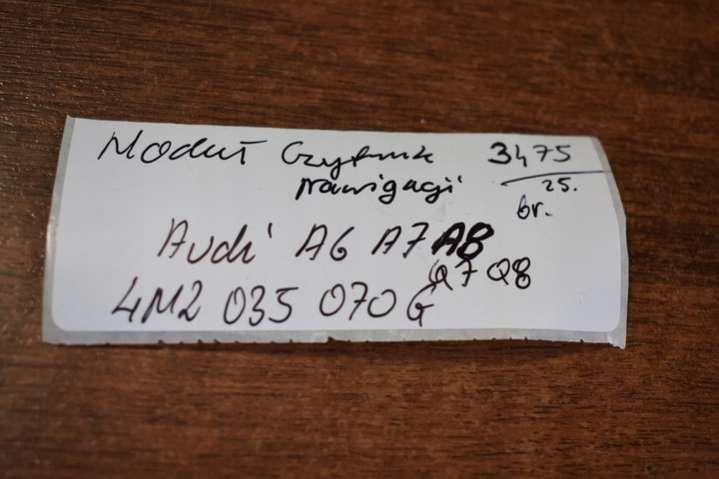 Moduł Czytnik
nawigacji
3475
25.
br.
Audi A6 A7 A8
Q7 Q8
4M2 035 070 G